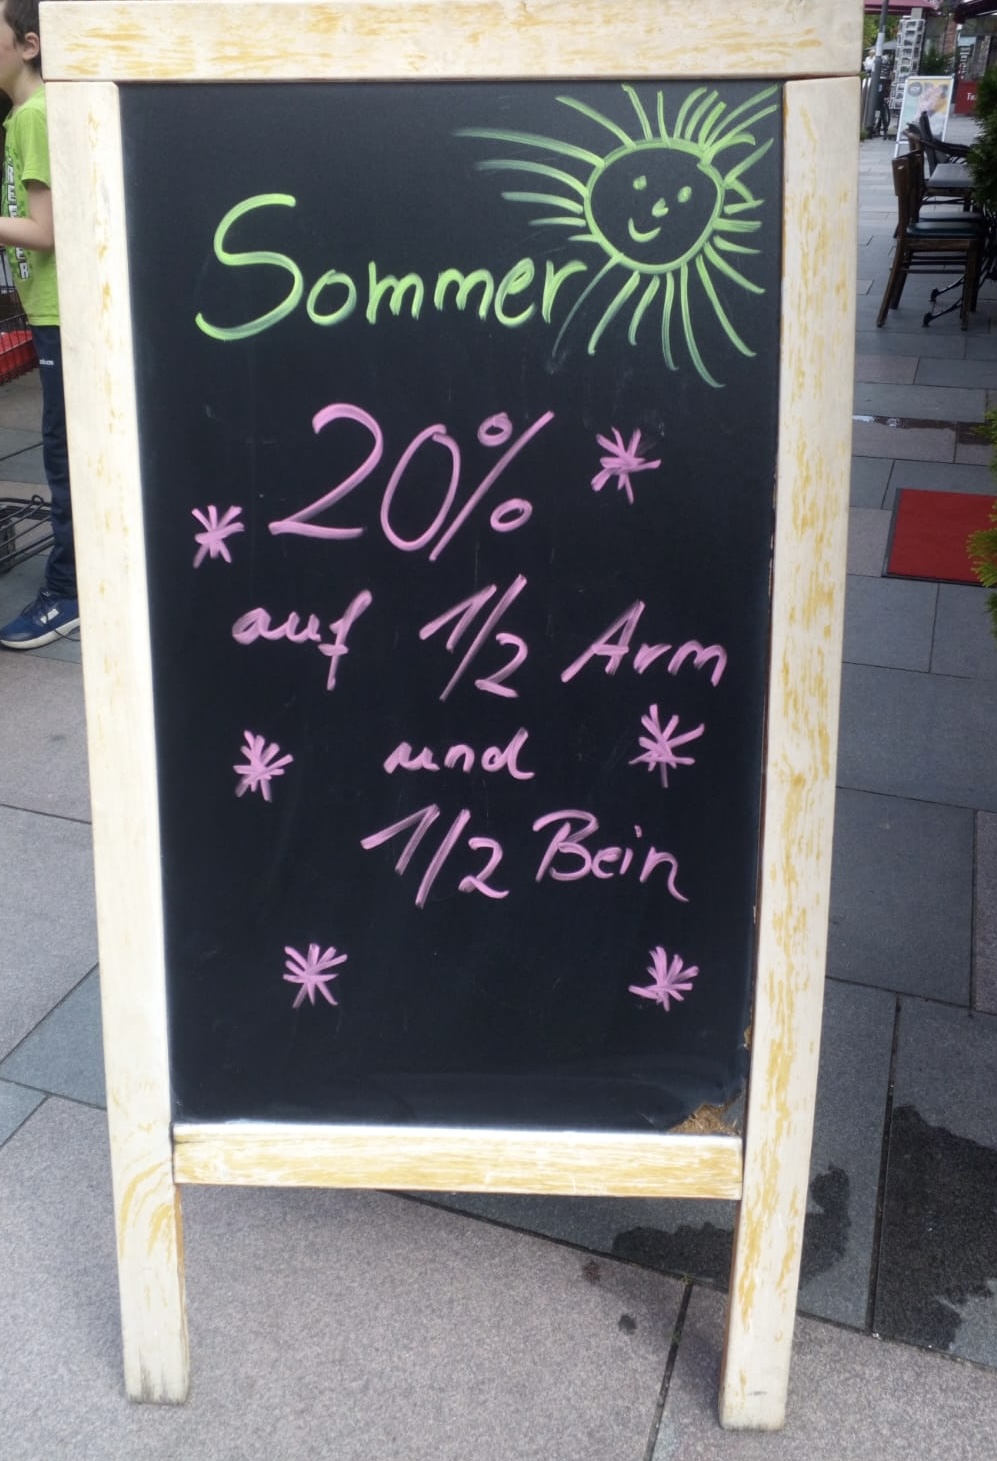 Sommer
20%
auf 1/2 Arm
und
1/2 Bein